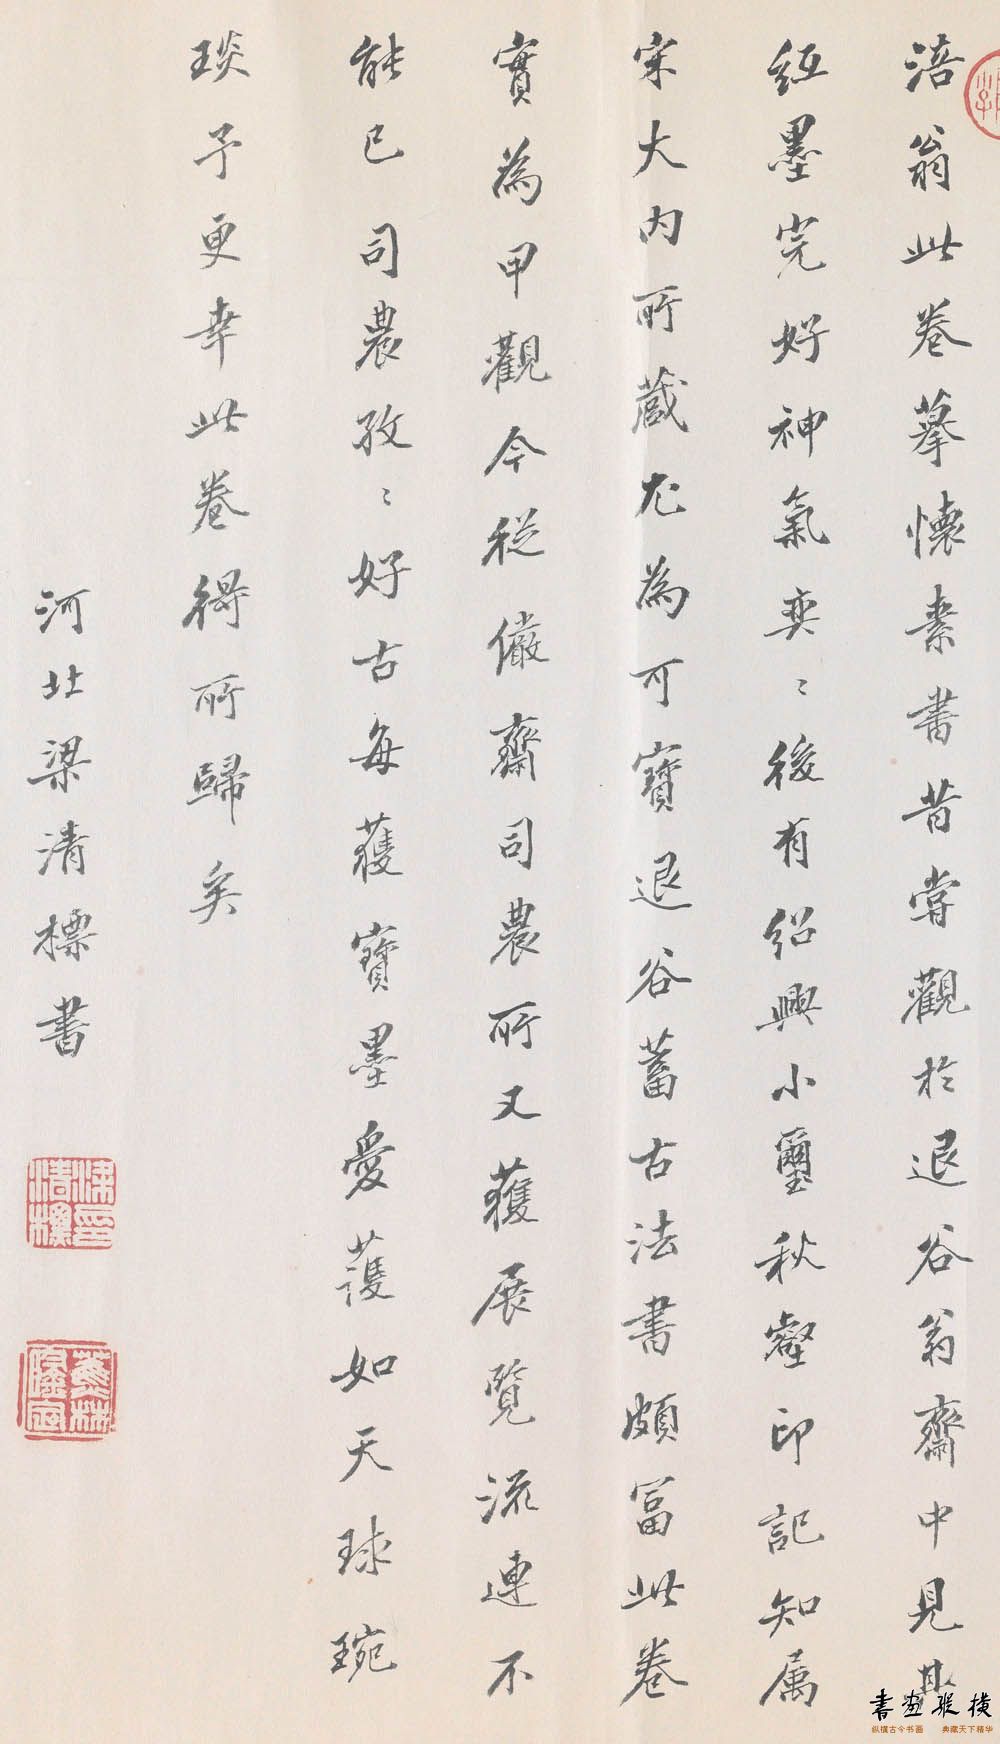 涪翁此卷摹懷素書昔嘗觀於退谷翁齋中見其
紙墨完好神氣奕〻後有紹興小璽秋壑印記知属
宋大內所藏尤為可寶退谷蓄古法書頗富此卷
實為甲觀今從儼齋司農所又獲展覽流連不
能已司農孜〻好古每獲寶墨愛護如天球琬
琰予更幸此卷得所歸矣
河北梁清標書
梁清標印
蕉林
書画縱橫
纵横古今书画 典藏天下精华